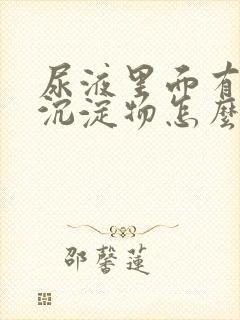 尿液里面有
沉淀物怎麼
邵馨蓮